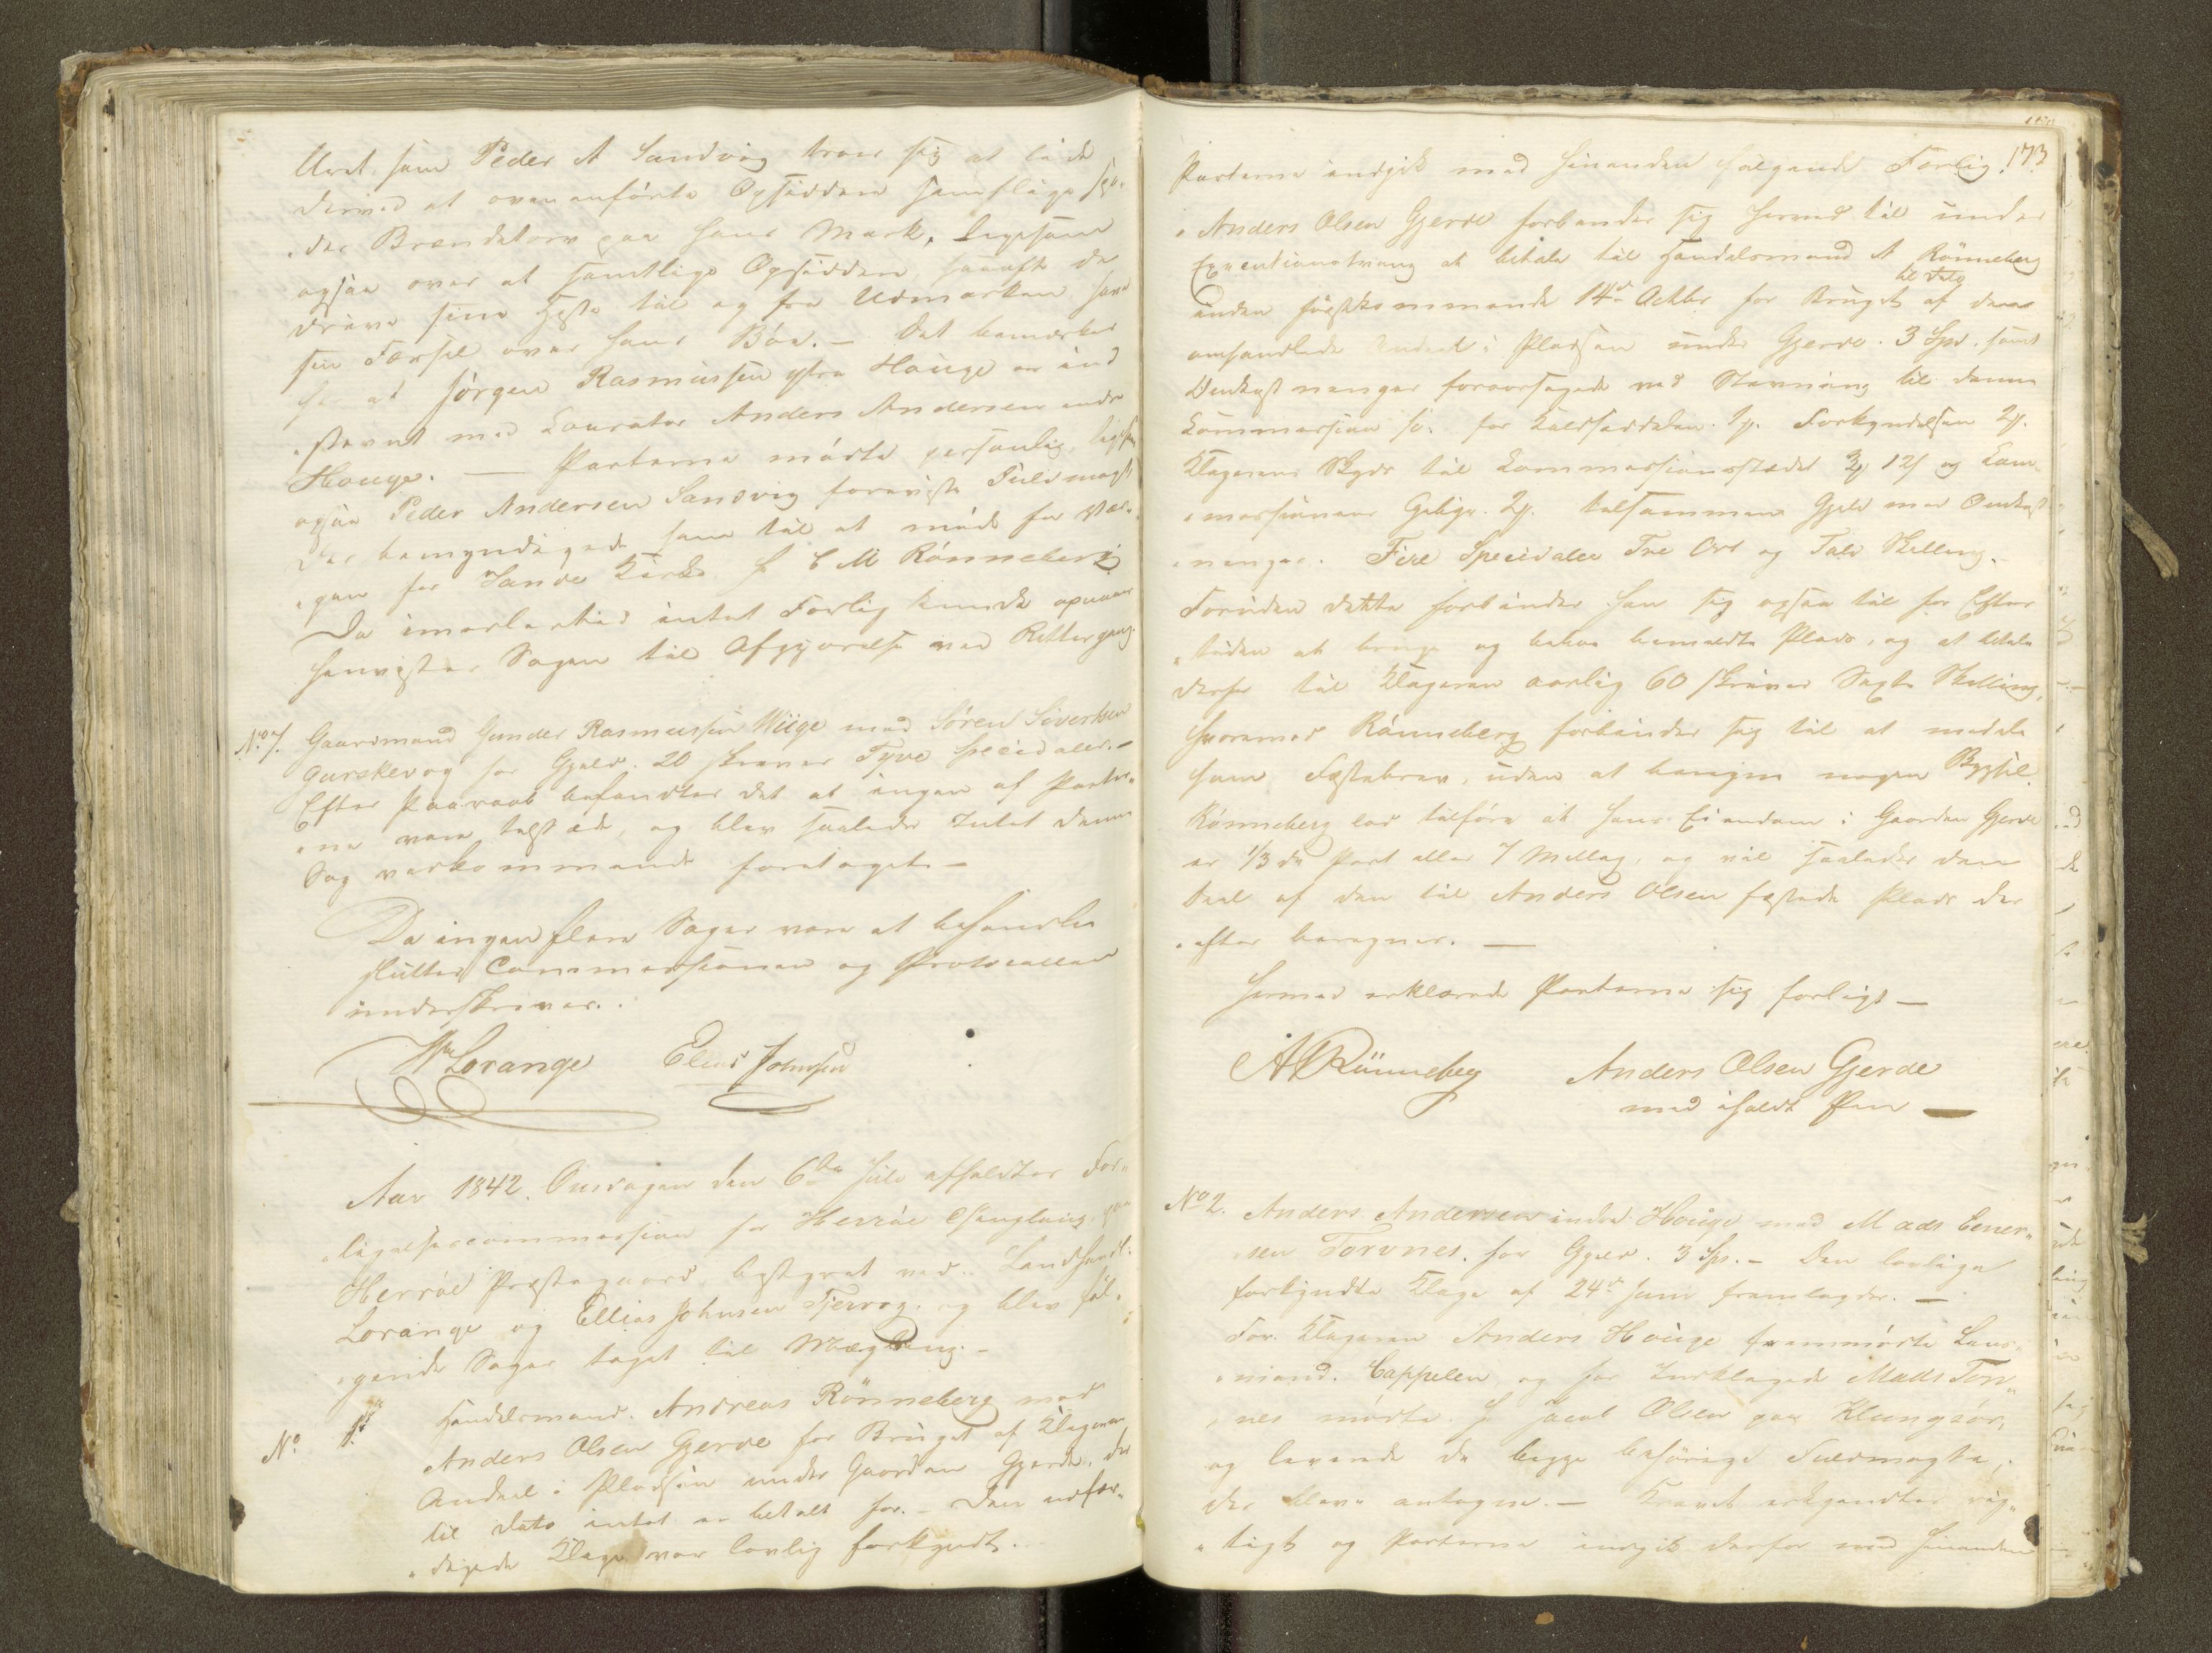 Uret som Peder A Sandvig troer sig at lide
derved at ovenanførte Opsiddere samtlige skjæ-
der Brændetorv paa hans Mark, ligesom
ogsaa over at samtlige Opsiddere, saaofte de
drive sine Heste til og fra Udmarken have
sin Færsel over hans Bøe. – Det bemærkes
her at Jørgen Rasmussen ytre Houge er ind
stævnt med Courator Anders Andersen indre
Houge. — Parterne mødte personlig, ligesom
ogsaa Peder Andersen Sandvig foreviste Fuldmagt
der bemyndigede ham til at møde for Vær-
gen for Sande Kirke H C M Rønneberg
Da imidlertid intet Forlig kunde opnaaes
henvistes Sagen til Afgjørelse ved Rettergang.
No 7. Gaardmand Gunder Rasmussen Wiige med Søren Sivertsen
Gurskevog for Gjæld. 20 skriver Tyve Speciedaler. –
Efter Paaraab befandtes det at ingen af Parter-
ne vare tilstæde, og blev saaledes Intet denne
Sag vedkommende foretaget –
Da ingen flere Sager vare at behandle
sluttes Commissionen og Protocollen
underskrives.
Lorange Elias Johnsen
Aar 1842. Onsdagen den 6te Juli afholdtes For-
ligelsescommission for Herrøe Thinglaug paa
Herrøe Præstegaard, bestyret ved Landhandl.
Lorange og Ellias Johnsen Tjervog. og blev føl-
gende Sager taget til Mægling. –
No 1. Handelsmand. Andreas Rönneberg med
Anders Olsen Gjerde for Bruget af Klagerens
Andeel i Pladsen under Gaarden Gjerde, der
til Dato intet er betalt for. – Den udfær-
digede Klage var lovlig forkyndt.
173
Parterne indgik med hinanden følgende Forlig:
Anders Olsen Gjerde forbinder sig herved til under
Executionstvang at betale til Handelsmand A Rönneberg
inden førstkommende 14de Octbr for Bruget til Dato af den
omhandlede Andeel i Pladsen under Gjerde. 3 Spd. samt
Omkostninger foraarsagede ved Stævning til denne
Commission for Kaldseddelen 1 Forkyndelsen 2
Klagerens Skyds til Commissionsstædet 12 og Com-
missionens Gebyr. 2 tilsammen Gjæld med Omkost-
ninger. Fire Speciedaler Tre Ort og Tolv Skilling. –
Foruden dette forbinder han sig ogsaa til for Efter-
tiden at bruge og beboe bemeldte Plads, og at betale
derfor til Klageren aarlig 60 skriver Sexti Skilling,
hvorimod Rönneberg forbinder sig til at meddele
ham Fæstebrev, uden at beregne nogen Bygsel
Rönneberg lod tilføre at hans Eiendom i Gaarden Gjerde
er 1/3 de Part eller 7 Mellag, og vil saaledes den
Deel af den til Anders Olsen fæstede Plads der
efter beregnes. —
Hermed erklærede Parterne sig forligt –
A Rönneberg Anders Olsen Gjerde
med iholdt Pen –
No 2. Anders Andersen indre Houge med Mads Ener-
sen Torvnes. for Gjæld. 3 Sp. – Den lovlige
forkyndte Klage af 24de Juni fremlagdes. –
For Klageren Anders Houge fremmødte Lens-
mand. Cappelen, og for Indklagede Mads Torv-
nes mødte Jacob Olsen paa Klungsör,
og leverede de begge behørige Fuldmagter,
der bleve antagne. – Kravet erkjendtes rig-
tigt og Parterne indgik derfor med hinanden